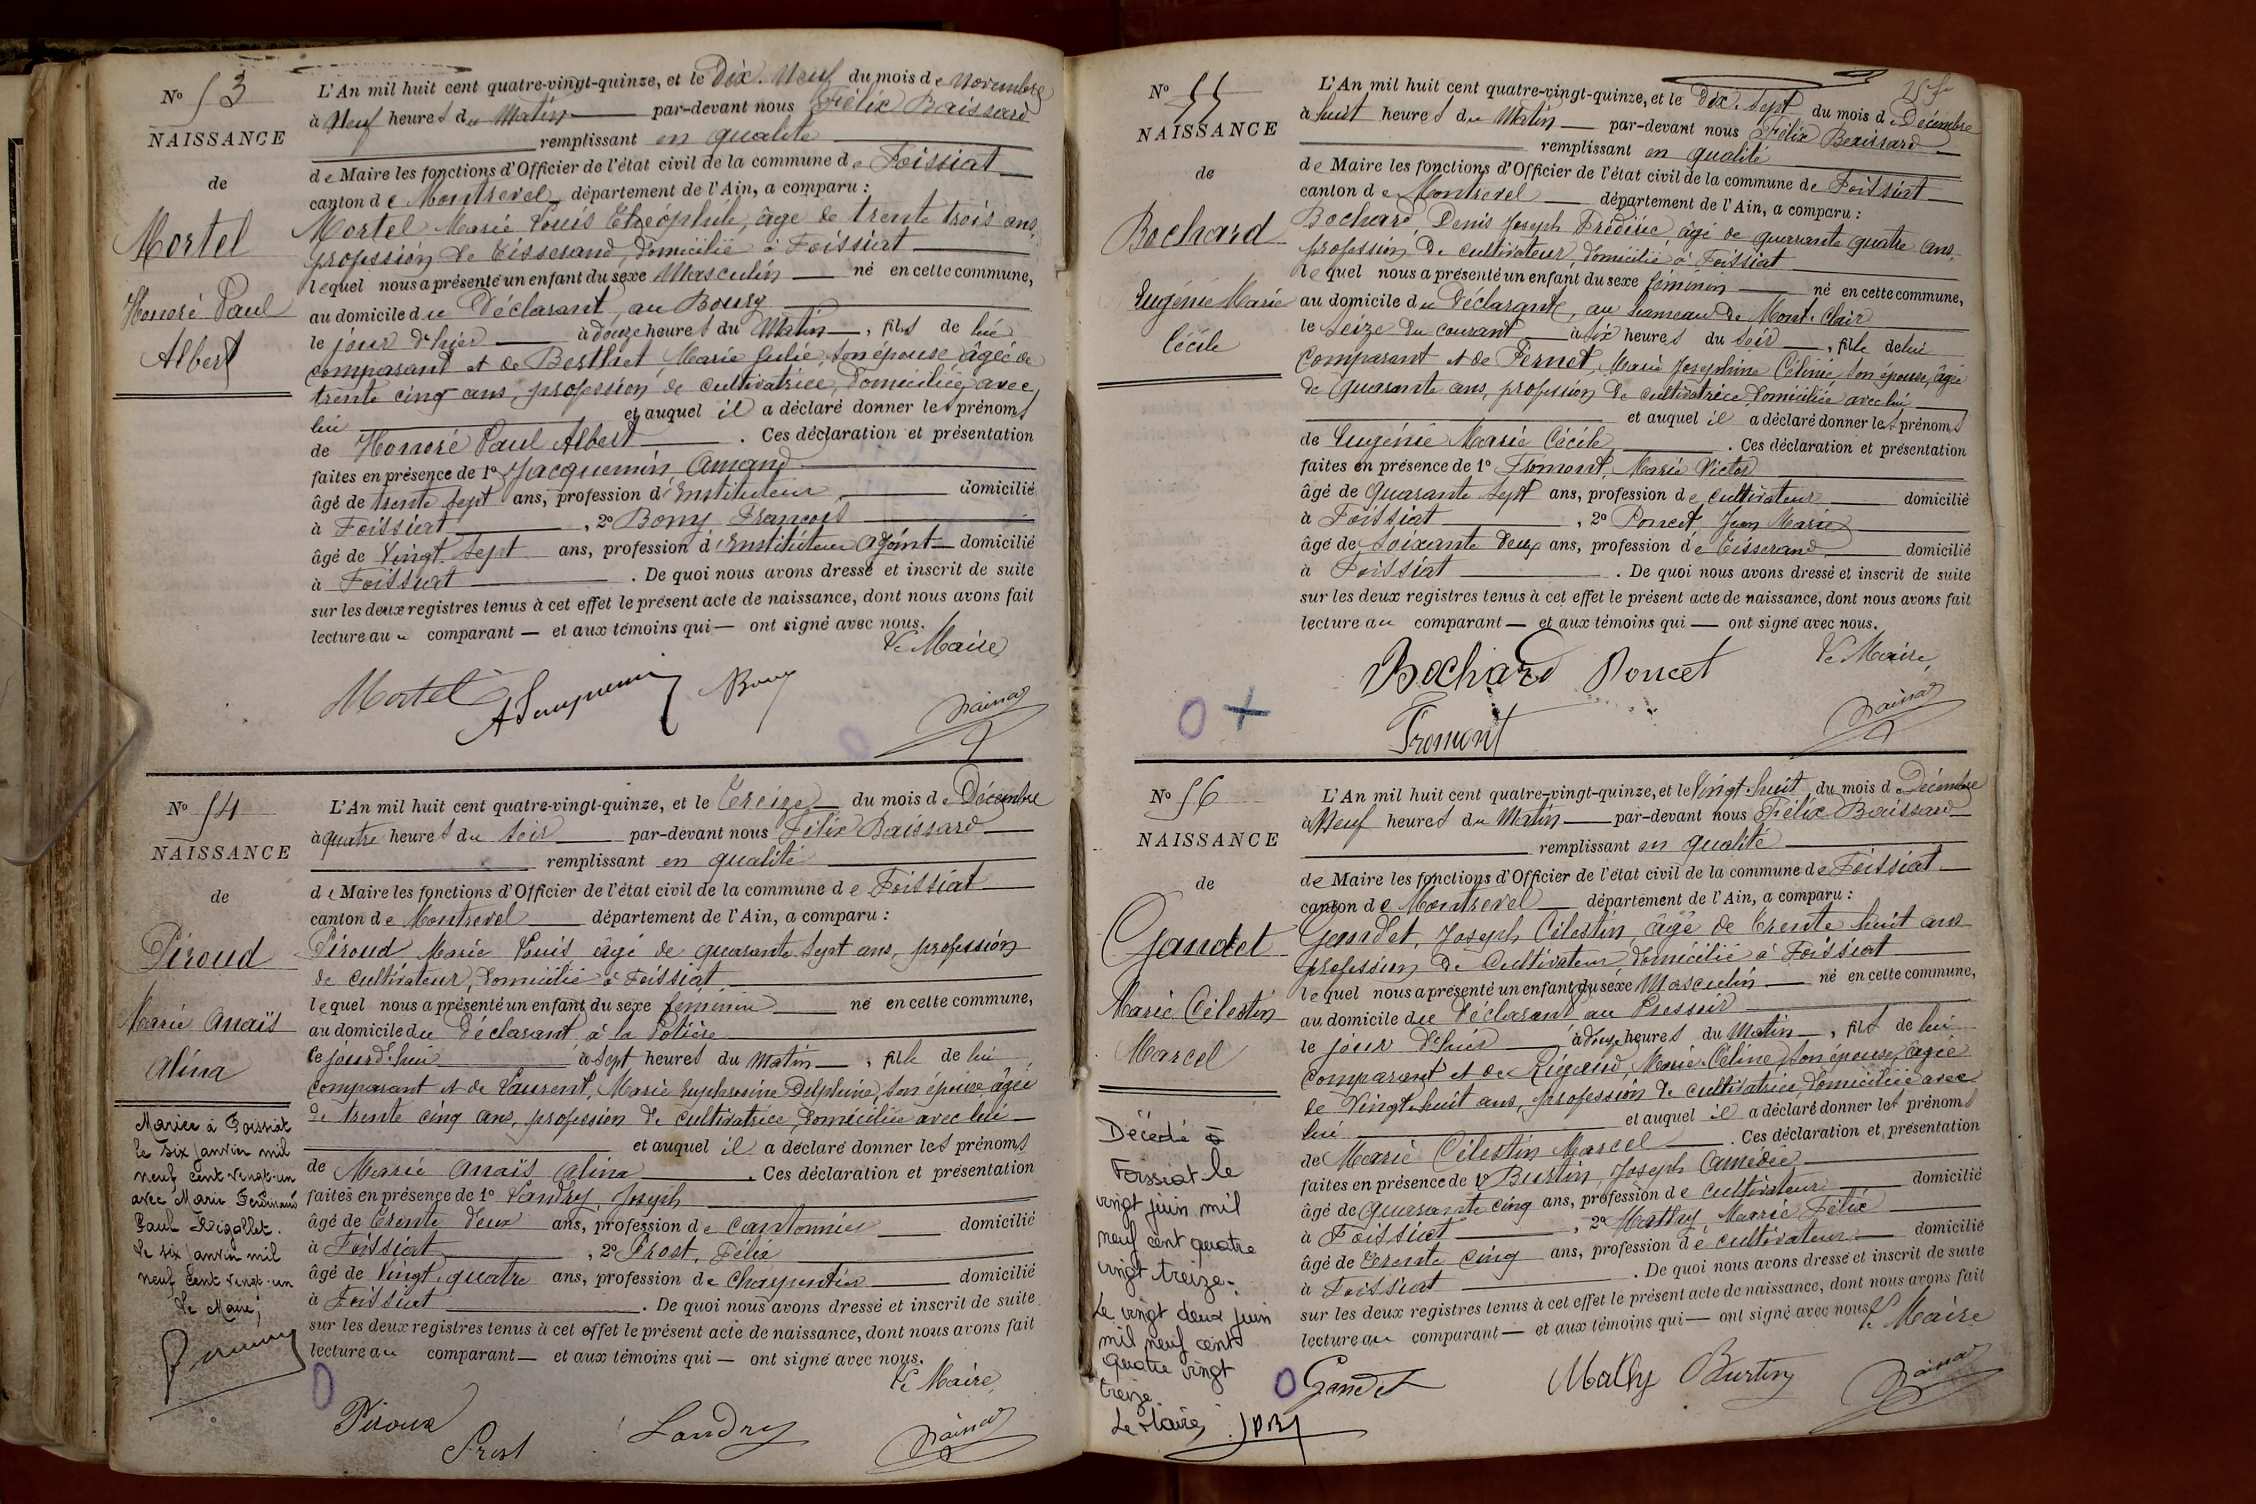 N° 53
NAISSANCE
de
Mortel
Honoré Paul
Albert
L'An mil huit cent quatre-vingt-quinze, et le Dix-Neuf du mois de Novembre
à Neuf heures du Matin par-devant nous Félix Baissard
remplissant en qualité
de Maire les fonctions d'Officier de l'état civil de la commune de Foissiat
canton de Montrevel département de l'Ain, a comparu :
Mortel Marie Louis Théophile, âgé de trente trois ans,
profession de tisserand, domicilié à Foissiat
lequel nous a présenté un enfant du sexe Masculin né en cette commune,
au domicile du Déclarant, au Bourg
le jour d'hier à douze heures du Matin, fils de lui
comparant et de Berthet, Marie Julie, son épouse âgée de
trente cinq ans, profession de cultivatrice, domiciliée avec
lui et auquel il a déclaré donner les prénoms
de Honoré Paul Albert. Ces déclaration et présentation
faites en présence de 1° Jacquemin Amand
âgé de trente sept ans, profession d'Instituteur domicilié
à Foissiat, 2° Bony François
âgé de Vingt Sept ans, profession d'Instituteur Adjoint domicilié
à Foissiat. De quoi nous avons dressé et inscrit de suite
sur les deux registres tenus à cet effet le présent acte de naissance, dont nous avons fait
lecture au comparant et aux témoins qui ont signé avec nous.
Le Maire
Mortel A Jacquemin Bony
Baissard
N° 54
NAISSANCE
de
Piroud
Marie Anaïs
Alina
Mariée à Foissiat
le six Janvier mil
neuf cent vingt-un
avec Marie Ferdinand
Paul Rigollet.
Le six Janvier mil
neuf cent vingt-un
Le Maire,
L'An mil huit cent quatre-vingt-quinze, et le Treize du mois de Décembre
à quatre heures du soir par-devant nous Félix Baissard
remplissant en qualité
de Maire les fonctions d'Officier de l'état civil de la commune de Foissiat
canton de Montrevel département de l'Ain, a comparu :
Piroud Marie Louis âgé de quarante Sept ans, profession
de cultivateur, domicilié à Foissiat
lequel nous a présenté un enfant du sexe féminin né en cette commune,
au domicile du Déclarant, à la Potière
le jourd'hui à sept heures du matin, fille de lui
comparant et de Laurent, Marie Euphrosine Delphine, son épouse âgée
de trente cinq ans, profession de cultivatrice, domiciliée avec lui
et auquel il a déclaré donner les prénoms
de Marie Anaïs Alina. Ces déclaration et présentation
faites en présence de 1° Landry Joseph
âgé de trente deux ans, profession de Cantonnier domicilié
à Foissiat, 2° Prost, Félix
âgé de Vingt quatre ans, profession de Charpentier domicilié
à Foissiat. De quoi nous avons dressé et inscrit de suite
sur les deux registres tenus à cet effet le présent acte de naissance, dont nous avons fait
lecture au comparant et aux témoins qui ont signé avec nous.
Le Maire,
Piroud Prost Landry
Baissard
N° 55
NAISSANCE
de
Bochard
Eugénie Marie
Cécile
L'An mil huit cent quatre-vingt-quinze, et le Dix-Sept du mois de Décembre
à huit heures du Matin par-devant nous Félix Baissard
remplissant en qualité
de Maire les fonctions d'Officier de l'état civil de la commune de Foissiat
canton de Montrevel département de l'Ain, a comparu :
Bochard, Denis Joseph Frédéric, âgé de quarante quatre ans,
profession de cultivateur, domicilié à Foissiat
lequel nous a présenté un enfant du sexe féminin né en cette commune,
au domicile du Déclarant, au hameau de Mont-Clair
le seize du courant à six heures du soir, fille de lui
comparant et de Fernet, Marie Joséphine Célinie son épouse, âgée
de quarante ans, profession de cultivatrice, domiciliée avec lui
et auquel il a déclaré donner les prénoms
de Eugénie Marie Cécile. Ces déclaration et présentation
faites en présence de 1° Fromont, Marie Victor
âgé de quarante Sept ans, profession de cultivateur domicilié
à Foissiat, 2° Poncet Jean Marie
âgé de soixante deux ans, profession de Tisserand domicilié
à Foissiat. De quoi nous avons dressé et inscrit de suite
sur les deux registres tenus à cet effet le présent acte de naissance, dont nous avons fait
lecture au comparant et aux témoins qui ont signé avec nous.
Le Maire,
Bochard Poncet
Fromont
Baissard
N° 56
NAISSANCE
de
Gandet
Marie Célestin
Marcel
Décédé à
Foissiat le
vingt juin mil
neuf cent quatre
vingt treize.
Le vingt deux juin
mil neuf cent
quatre vingt
treize
Le Maire
L'An mil huit cent quatre-vingt-quinze, et le Vingt-huit du mois de Décembre
à Neuf heures du Matin par-devant nous Félix Baissard
remplissant en qualité
de Maire les fonctions d'Officier de l'état civil de la commune de Foissiat
canton de Montrevel département de l'Ain, a comparu :
Gandet, Joseph Célestin, âgé de trente huit ans
profession de Cultivateur domicilié à Foissiat
lequel nous a présenté un enfant du sexe Masculin né en cette commune,
au domicile du Déclarant au Pressoir
le jour d'hier à douze heures du Matin, fils de lui
comparant et de Rigaud, Marie Céline, son épouse, âgée
de Vingt-huit ans, profession de cultivatrice, domiciliée avec
lui et auquel il a déclaré donner les prénoms
de Marie Célestin Marcel. Ces déclaration et présentation
faites en présence de 1° Burtin, Joseph Amédée
âgé de quarante cinq ans, profession de cultivateur domicilié
à Foissiat, 2° Mathy, Marie Félix
âgé de trente cinq ans, profession de cultivateur domicilié
à Foissiat. De quoi nous avons dressé et inscrit de suite
sur les deux registres tenus à cet effet le présent acte de naissance, dont nous avons fait
lecture au comparant et aux témoins qui ont signé avec nous.
Le Maire
Gandet Mathy Burtin
Baissard